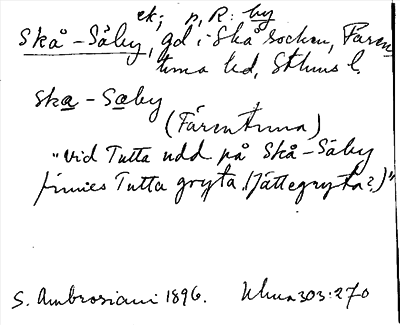 ek; p, R: by
Skå-Säby, gd i Skå socken, Fären
tuna hd, Sthlms l.
Ska - Sæby
(Färentuna)
"vid Tutta udd på Skå-Säby
finnes Tutta gryta (Jättegryta?)"
S. Ambrosiani 1896. 303:270